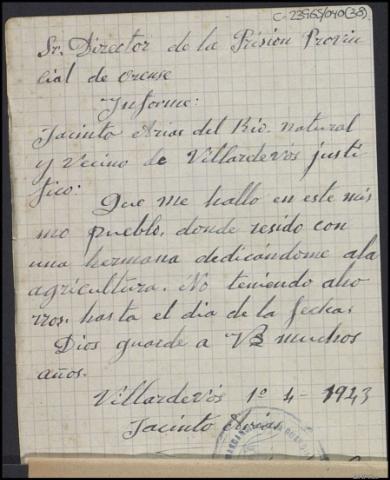 C-23965/040(38)
Sr. Director de la Prision Provin
cial de Orense
Informe:
Jacinto Arias del Rio. natural
y Vecino de Villardevos justi
fico:
Que me hallo en este mis
mo pueblo, donde resido con
una hermana dedicándome ala
agricultura. No teniendo aho
rros. hasta el dia de la fecha.
Dios guarde a VS muchos
años.
Villardevós 1º 4 - 1943
Jacinto Arias